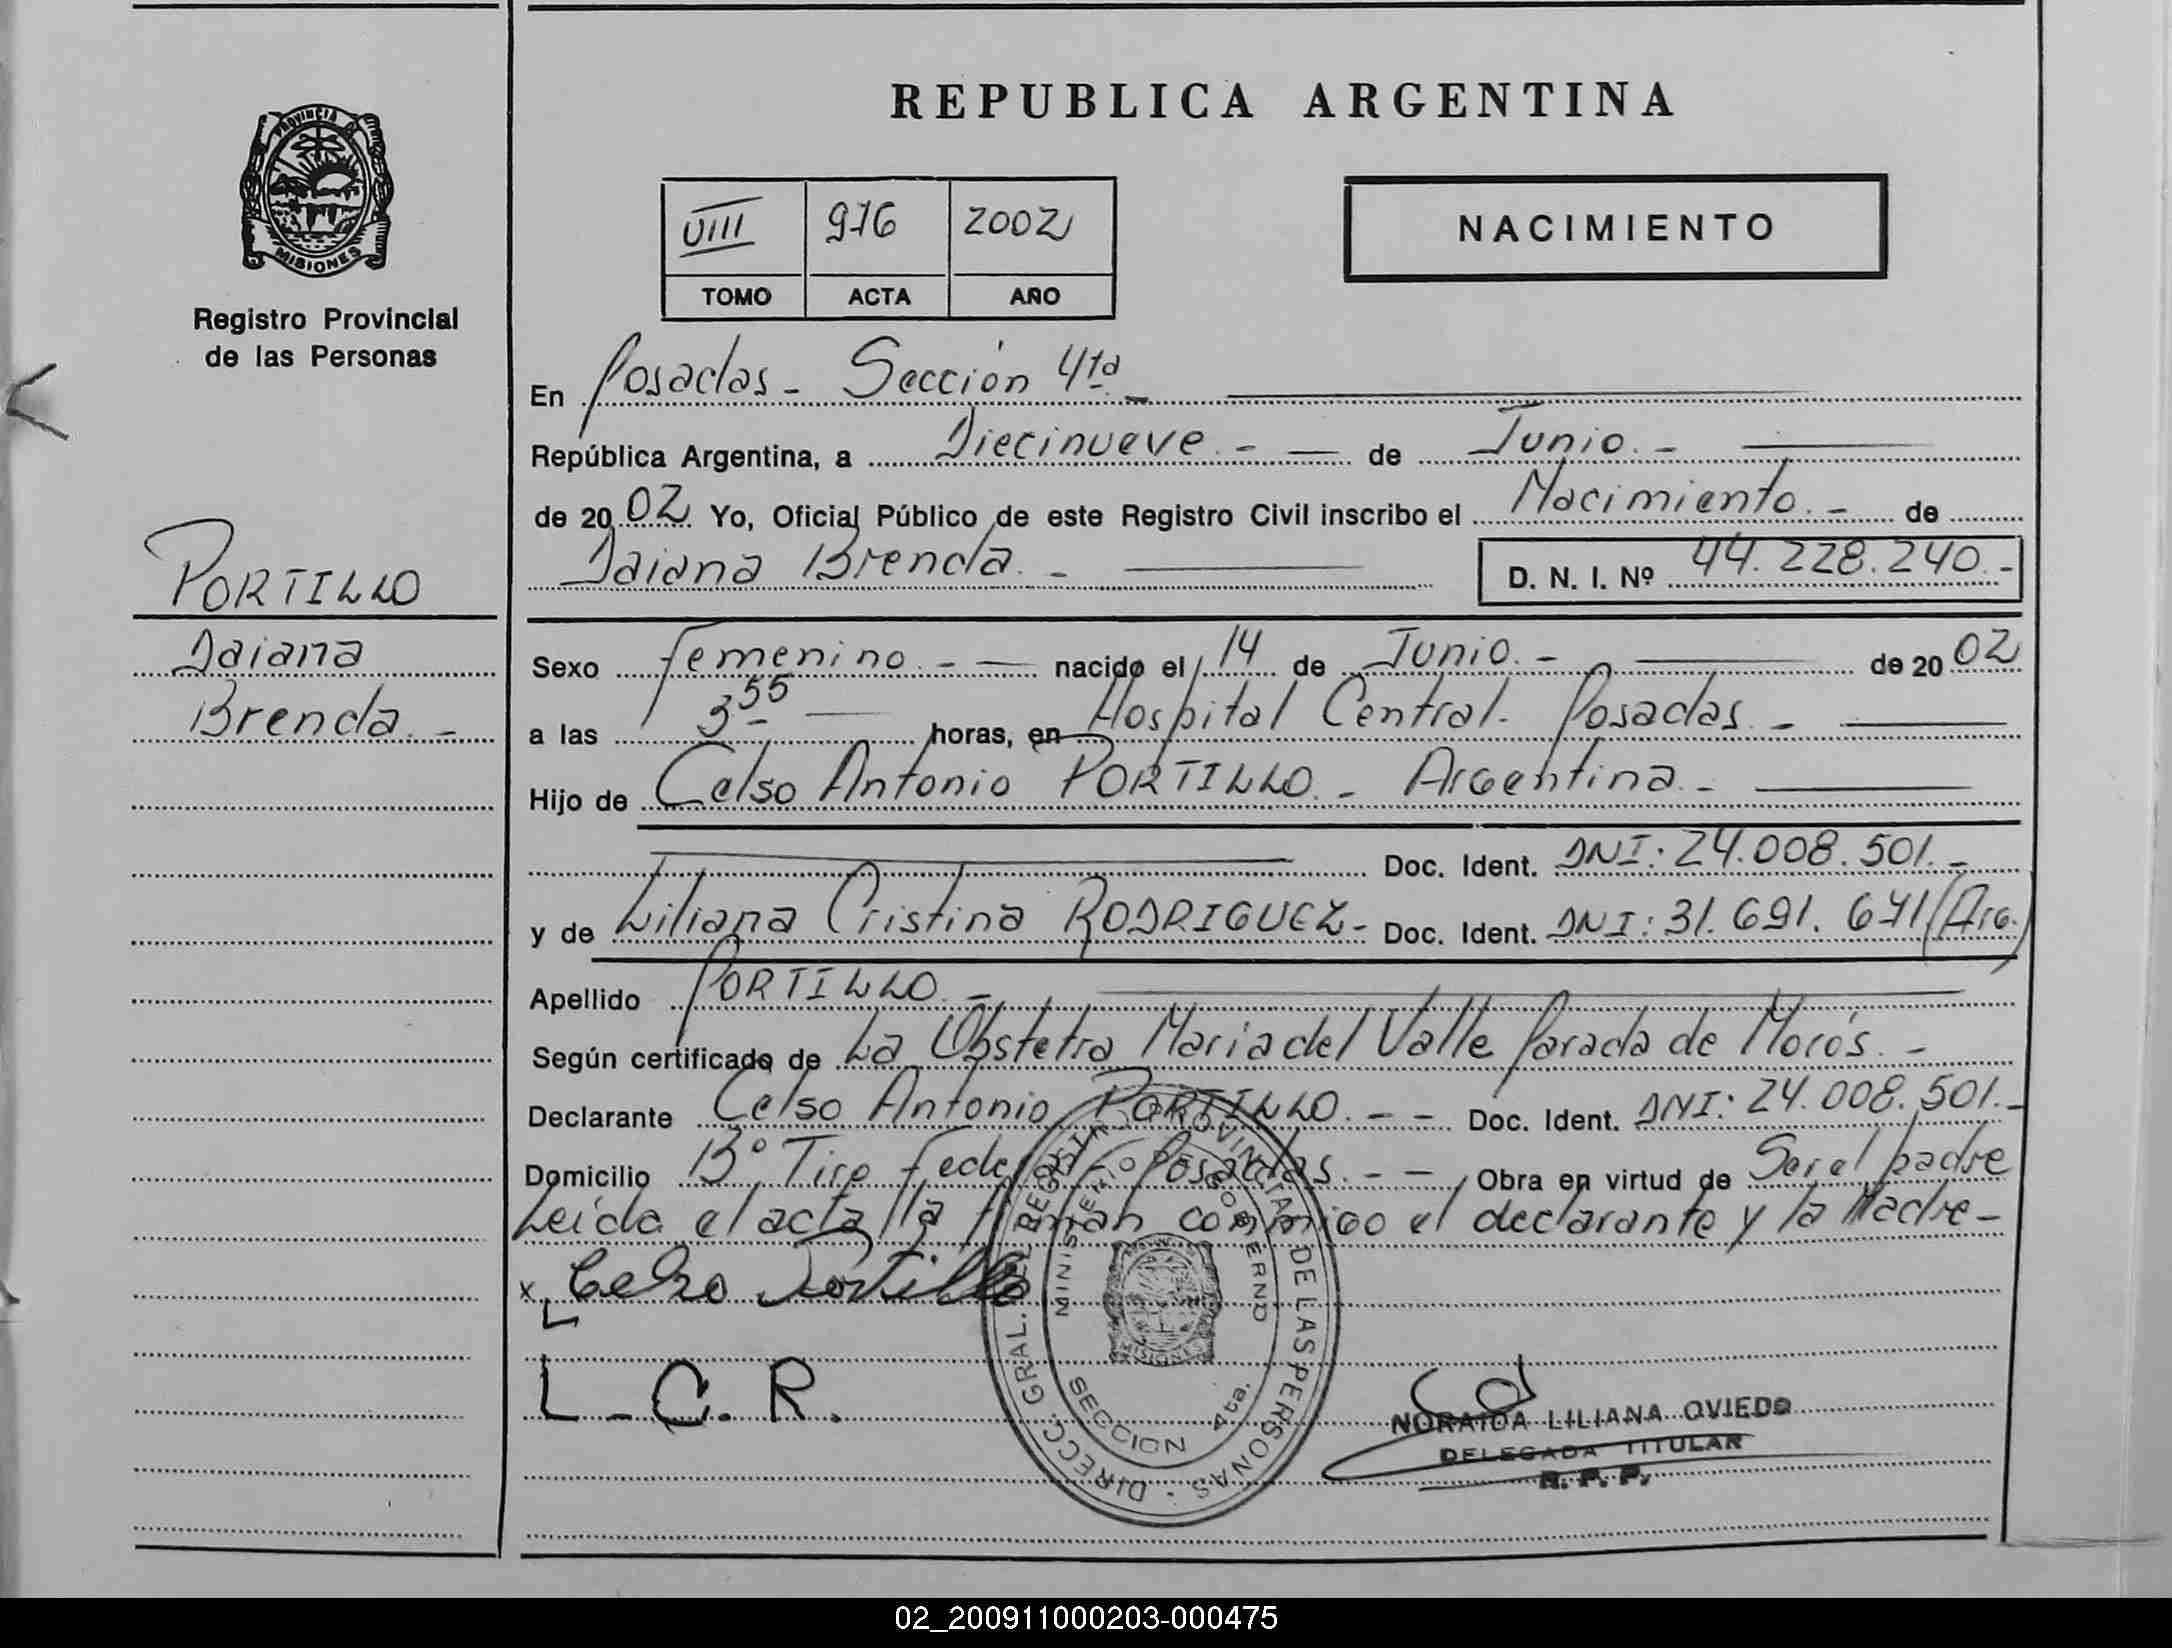 REPUBLICA ARGENTINA
PROVINCIA DE
MISIONES
Registro Provincial
de las Personas
VIII 976 2002
TOMO ACTA AÑO
NACIMIENTO
En Posadas - Sección 4ta -
República Argentina, a Diecinueve. - de Junio. -
de 20 02 Yo, Oficial Público de este Registro Civil inscribo el Nacimiento. - de
Daiana Brenda. - D. N. I. Nº 44.228.240. -
PORTILLO
Daiana
Brenda. -
Sexo femenino. - nacido el 14 de Junio. - de 20 02
a las 3 55 horas, en Hospital Central. Posadas. -
Hijo de Celso Antonio PORTILLO. - Argentina. -
Doc. Ident. DNI: 24.008.501. -
y de Liliana Cristina RODRIGUEZ - Doc. Ident. DNI: 31.691.671 (Arg.)
Apellido PORTILLO. -
Según certificado de La Obstetra Maria del Valle Parada de Morós. -
Declarante Celso Antonio PORTILLO. - - Doc. Ident. DNI: 24.008.501. -
Domicilio Bº Tiro Federal Posadas. - - Obra en virtud de Ser el padre
Leída el acta la firman conmigo el declarante y la Madre -
x Celso Portillo
L - C. R.
DIRECC. GRAL. DEL REGISTRO PROVINCIAL DE LAS PERSONAS
MINISTERIO DE GOBIERNO
MISIONES
SECCION 4ta.
NORAIDA LILIANA OVIEDO
DELEGADA TITULAR
R. P. P.
02_200911000203-000475